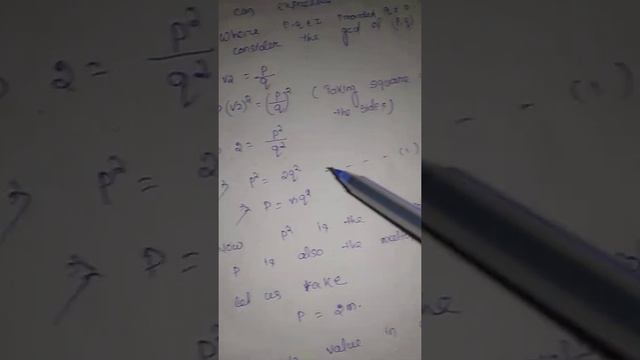 can expressed
Where p, q ∈ I Provided q ≠ 0
consider the gcd of (p, q)
√2 = p/q
(√2)² = (p/q)² (Taking square
the sides)
2 = p²/q²
⇒ p² = 2q² - - - - (1)
⇒ P =
Now p² is the
P is also the
Let us take
P = 2m.
value in